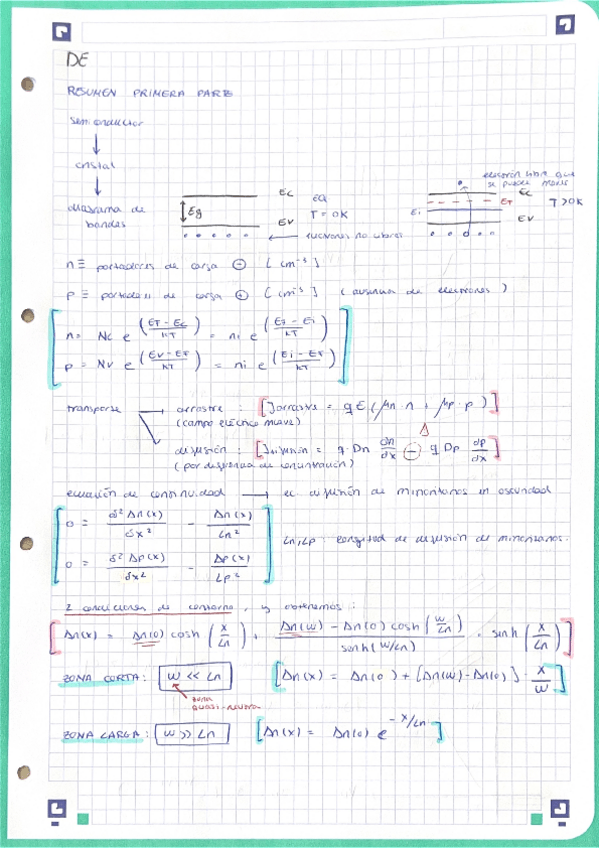 DE
RESUMEN PRIMERA PARTE
semiconductor
↓
cristal
↓
diagrama de bandas
Eg
Ec
Ev
EQ
T = 0K
← electrones no libres
electrón libre que se puede mover
Ec
EF
Ei
Ev
T > 0K
n ≡ portadores de carga ⊖ [cm⁻³]
p ≡ portadores de carga ⊕ [cm⁻³] (ausencia de electrones)
n = Nc e^((EF - Ec)/kT) = ni e^((EF - Ei)/kT)
p = Nv e^((Ev - EF)/kT) = ni e^((Ei - EF)/kT)
transporte → arrastre : [Jarrastre = q E (μn · n + μp · p)]
(campo eléctrico mueve)
difusión : [Jdifusión = q · Dn dn/dx ⊖ q Dp dp/dx]
(por diferencia de concentración)
ecuación de continuidad → ec difusión de minoritarios en oscuridad
0 = δ² Δn(x)/δx² - Δn(x)/Ln²
Ln, Lp : longitud de difusión de minoritarios.
0 = δ² Δp(x)/δx² - Δp(x)/Lp²
2 condiciones de contorno, y obtenemos :
[Δn(x) = Δn(0) cosh (x/Ln) + (Δn(w) - Δn(0) cosh (w/Ln))/senh(w/Ln) · senh (x/Ln)]
ZONA CORTA : w << Ln [Δn(x) = Δn(0) + [Δn(w) - Δn(0)] · x/w]
zona quasi-neutra
ZONA LARGA : w >> Ln [Δn(x) = Δn(0) e^(-x/Ln)]